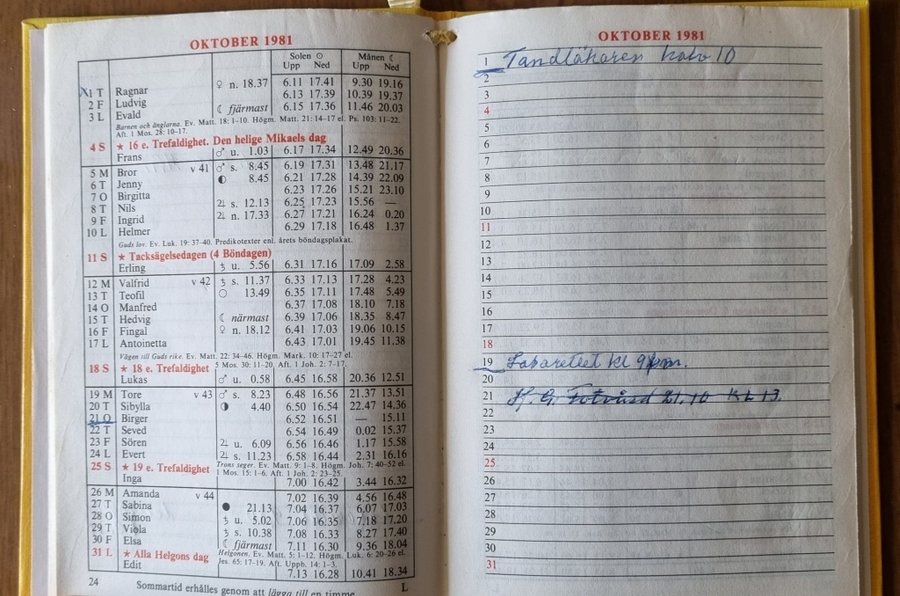 OKTOBER 1981
Solen ☉ Månen ☾
Upp Ned Upp Ned
1 T Ragnar ♀ n. 18.37 6.11 17.41 9.30 19.16
2 F Ludvig 6.13 17.39 10.39 19.37
3 L Evald ☾ fjärmast 6.15 17.36 11.46 20.03
Barnen och änglarna. Ev. Matt. 18: 1–10. Högm. Matt. 21: 14–17 el. Ps. 103: 11–22.
Aft. 1 Mos. 28: 10–17.
4 S ★ 16 e. Trefaldighet. Den helige Mikaels dag
Frans ♂ u. 1.03 6.17 17.34 12.49 20.36
5 M Bror v 41 ♂ s. 8.45 6.19 17.31 13.48 21.17
6 T Jenny ◐ 8.45 6.21 17.28 14.39 22.09
7 O Birgitta 6.23 17.26 15.21 23.10
8 T Nils ♃ s. 12.13 6.25 17.23 15.56 —
9 F Ingrid ♃ n. 17.33 6.27 17.21 16.24 0.20
10 L Helmer 6.29 17.18 16.48 1.37
Guds lov. Ev. Luk. 19: 37–40. Predikotexter enl. årets böndagsplakat.
11 S ★ Tacksägelsedagen (4 Böndagen)
Erling ♄ u. 5.56 6.31 17.16 17.09 2.58
12 M Valfrid v 42 ♄ s. 11.37 6.33 17.13 17.28 4.23
13 T Teofil ○ 13.49 6.35 17.11 17.48 5.49
14 O Manfred 6.37 17.08 18.10 7.18
15 T Hedvig ☾ närmast 6.39 17.06 18.35 8.47
16 F Fingal ♀ n. 18.12 6.41 17.03 19.06 10.15
17 L Antoinetta 6.43 17.01 19.45 11.38
Vägen till Guds rike. Ev. Matt. 22: 34–46. Högm. Mark. 10: 17–27 el.
18 S ★ 18 e. Trefaldighet 5 Mos. 30: 11–20. Aft. 1 Joh. 2: 7–17.
Lukas ♂ u. 0.58 6.45 16.58 20.36 12.51
19 M Tore v 43 ♂ s. 8.23 6.48 16.56 21.37 13.51
20 T Sibylla ◑ 4.40 6.50 16.54 22.47 14.36
21 O Birger 6.52 16.51 15.11
22 T Seved 6.54 16.49 0.02 15.37
23 F Sören ♃ u. 6.09 6.56 16.46 1.17 15.58
24 L Evert ♃ s. 11.23 6.58 16.44 2.31 16.16
25 S ★ 19 e. Trefaldighet Trons seger. Ev. Matt. 9: 1–8. Högm. Joh. 7: 40–52 el.
1 Mos. 15: 1–6. Aft. 1 Joh. 2: 23–25.
Inga 7.00 16.42 3.44 16.32
26 M Amanda v 44 7.02 16.39 4.56 16.48
27 T Sabina ● 21.13 7.04 16.37 6.07 17.03
28 O Simon ♄ u. 5.02 7.06 16.35 7.18 17.20
29 T Viola ♄ s. 10.38 7.08 16.33 8.27 17.40
30 F Elsa ☾ fjärmast 7.11 16.30 9.36 18.04
31 L ★ Alla Helgons dag Helgonen. Ev. Matt. 5: 1–12. Högm. Luk. 6: 20–26 el.
Jes. 65: 17–19. Aft. Uppb. 14: 1–3.
Edit 7.13 16.28 10.41 18.34
24 Sommartid erhålles genom att lägga till en timme L
OKTOBER 1981
1 Tandläkaren 10
2
3
4
5
6
7
8
9
10
11
12
13
14
15
16
17
18
19 Lasarettet kl 9
20
21 H. G. Fotvård 21.10 KL 13.
22
23
24
25
26
27
28
29
30
31